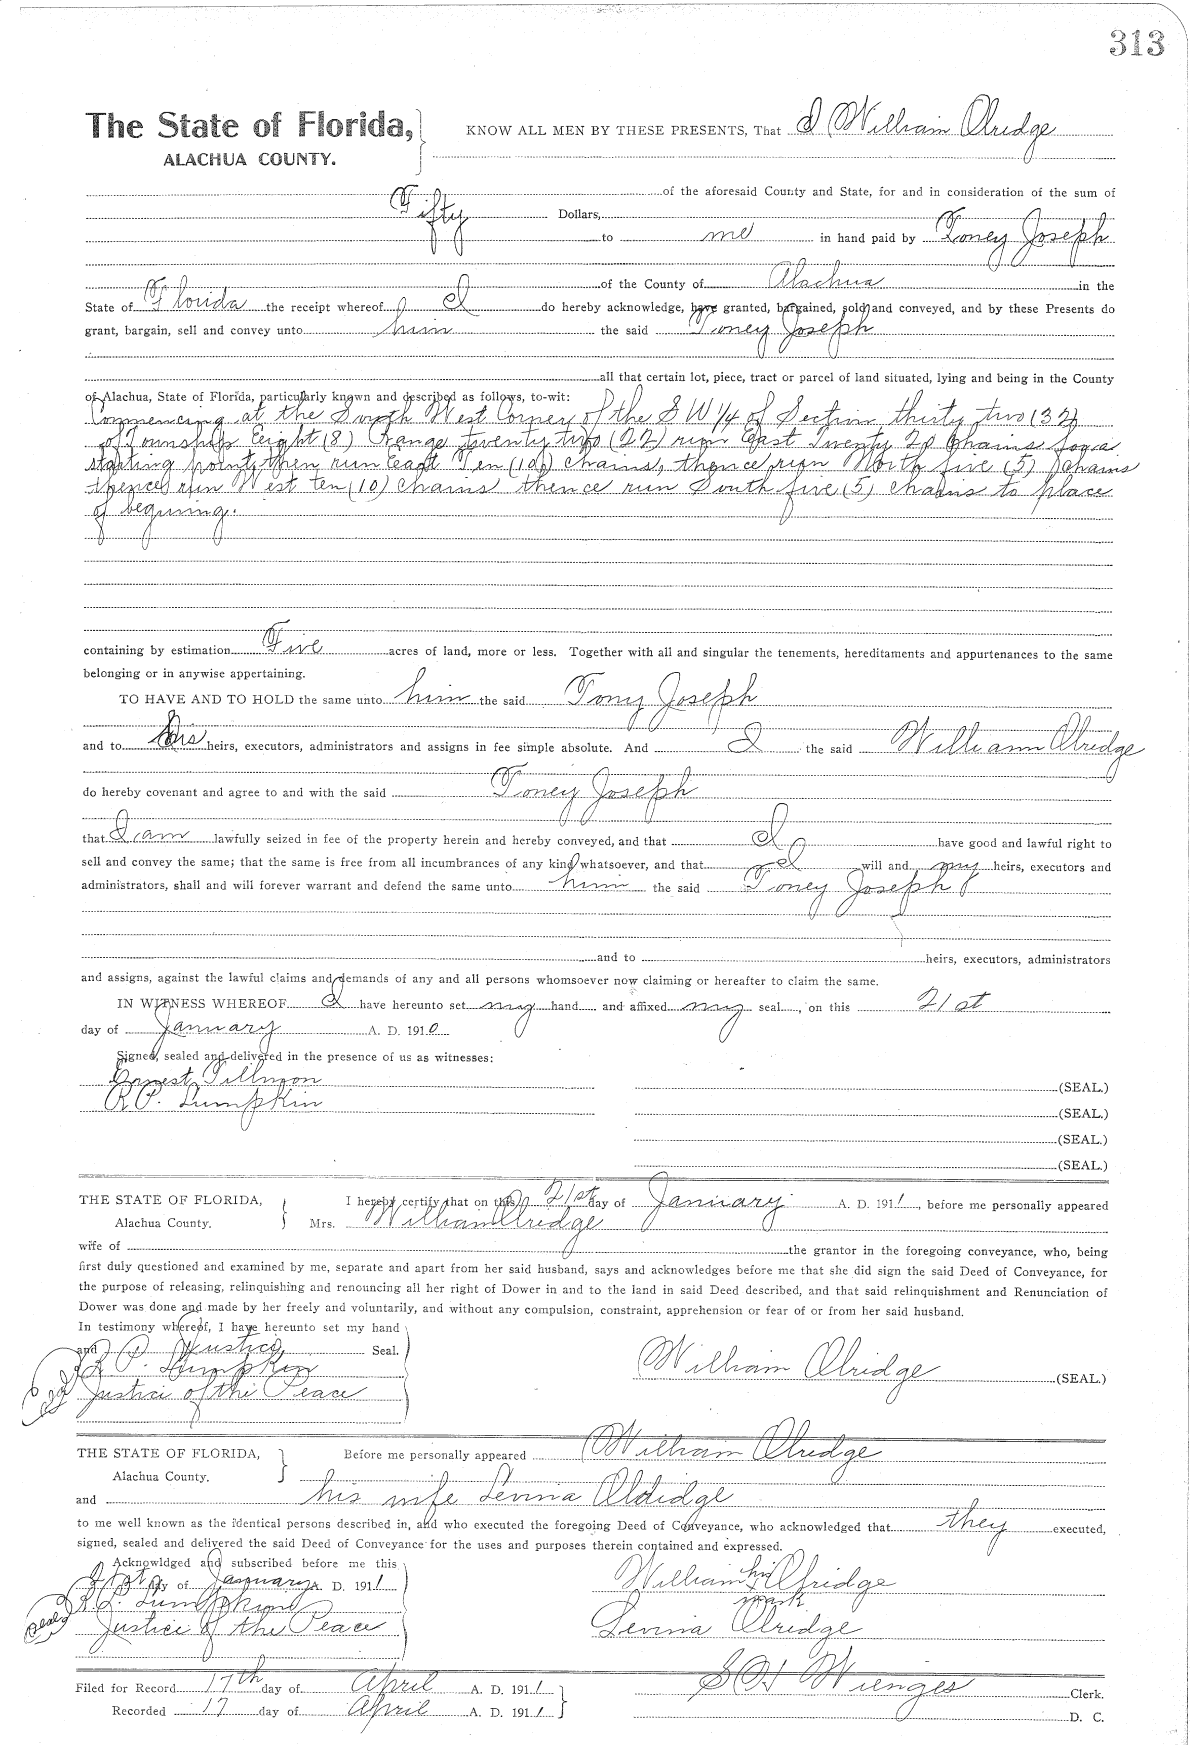 313
The State of Florida, KNOW ALL MEN BY THESE PRESENTS, That I William Olridge
ALACHUA COUNTY.
of the aforesaid County and State, for and in consideration of the sum of
Fifty Dollars,
to me in hand paid by Toney Joseph
of the County of Alachua in the
State of Florida the receipt whereof I do hereby acknowledge, have granted, bargained, sold and conveyed, and by these Presents do
grant, bargain, sell and convey unto him the said Toney Joseph
all that certain lot, piece, tract or parcel of land situated, lying and being in the County
of Alachua, State of Florida, particularly known and described as follows, to-wit:
Commencing at the South West Corner of the SW 1/4 of Section thirty two (32)
of Township Eeight (8) Range twenty two (22) run East Twenty 20 chains for a
starting point, then run East Ten (10) chains, thence run North five (5) chains
thence run West ten (10) chains thence run South five (5) chains to place
of beguning.
containing by estimation Five acres of land, more or less. Together with all and singular the tenements, hereditaments and appurtenances to the same
belonging or in anywise appertaining.
TO HAVE AND TO HOLD the same unto him the said Tony Joseph
and to his heirs, executors, administrators and assigns in fee simple absolute. And I the said William Olridge
do hereby covenant and agree to and with the said Toney Joseph
that I am lawfully seized in fee of the property herein and hereby conveyed, and that I have good and lawful right to
sell and convey the same; that the same is free from all incumbrances of any kind whatsoever, and that I will and my heirs, executors and
administrators, shall and will forever warrant and defend the same unto him the said Toney Joseph
and to heirs, executors, administrators
and assigns, against the lawful claims and demands of any and all persons whomsoever now claiming or hereafter to claim the same.
IN WITNESS WHEREOF I have hereunto set my hand and affixed my seal, on this 21st
day of January A. D. 1910
Signed, sealed and delivered in the presence of us as witnesses:
Ernest Tillmon (SEAL.)
R P. Lumpkin (SEAL.)
(SEAL.)
(SEAL.)
THE STATE OF FLORIDA, I hereby certify that on this 21st day of January A. D. 1911, before me personally appeared
Alachua County. Mrs. William Olridge
wife of the grantor in the foregoing conveyance, who, being
first duly questioned and examined by me, separate and apart from her said husband, says and acknowledges before me that she did sign the said Deed of Conveyance, for
the purpose of releasing, relinquishing and renouncing all her right of Dower in and to the land in said Deed described, and that said relinquishment and Renunciation of
Dower was done and made by her freely and voluntarily, and without any compulsion, constraint, apprehension or fear of or from her said husband.
In testimony whereof, I have hereunto set my hand
and Justice Seal.
R P. Lumpkin William Olridge (SEAL.)
Seal Justice of the Peace
THE STATE OF FLORIDA, Before me personally appeared William Olridge
Alachua County.
and his wife Levina Oldidge
to me well known as the identical persons described in, and who executed the foregoing Deed of Conveyance, who acknowledged that they executed,
signed, sealed and delivered the said Deed of Conveyance for the uses and purposes therein contained and expressed.
Acknowldged and subscribed before me this
21st day of January A. D. 1911 William his Olridge
R. P. Lumpkin mark
Seal Justice of the Peace Levina Olridge
Filed for Record 17th day of April A. D. 1911 S H Wienges Clerk.
Recorded 17 day of April A. D. 1911 D. C.